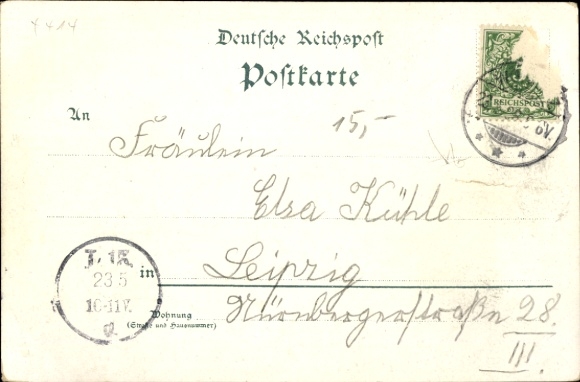 Y 414
Deutsche Reichspost
Postkarte
REICHSPOST
An
15,-
Fräulein
Elsa Kühle
in Leipzig
Wohnung
(Straße und Hausnummer)
Nürnbergerstraße 28.
III.
23 5
10-11V.